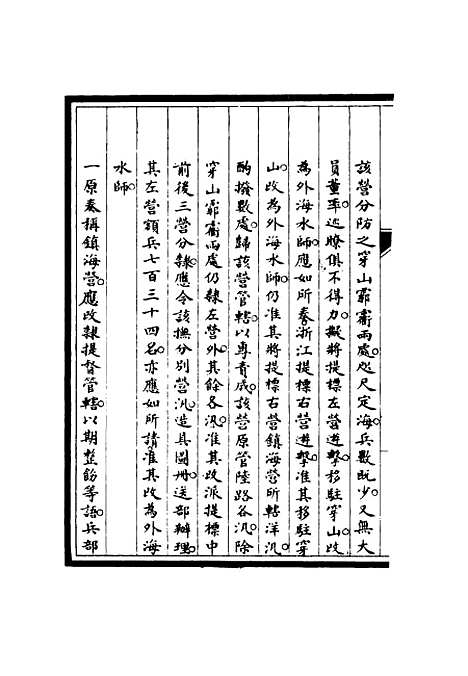 該營分防之穿山霩𩆩兩處。咫尺定海。兵數既少。又無大
員董率。巡瞭俱不得力。擬將提標左營遊擊。移駐穿山。改
為外海水師。應如所奏。浙江提標右營遊擊。准其移駐穿
山。改為外海水師。仍准其將提標右營鎮海營所轄洋汛。
酌撥數處。歸該營管轄。以專責成。該營原管陸路各汛。除
穿山霩𩆩兩處仍隸左營外。其餘各汛。准其改派提標中
前後三營分隸。應令該撫分別營汛。造具圖冊。送部辦理。
其左營額兵七百三十四名。亦應如所請。准其改為外海
水師。
一原奏稱鎮海營。應改隸提督管轄。以期整飭等語。兵部